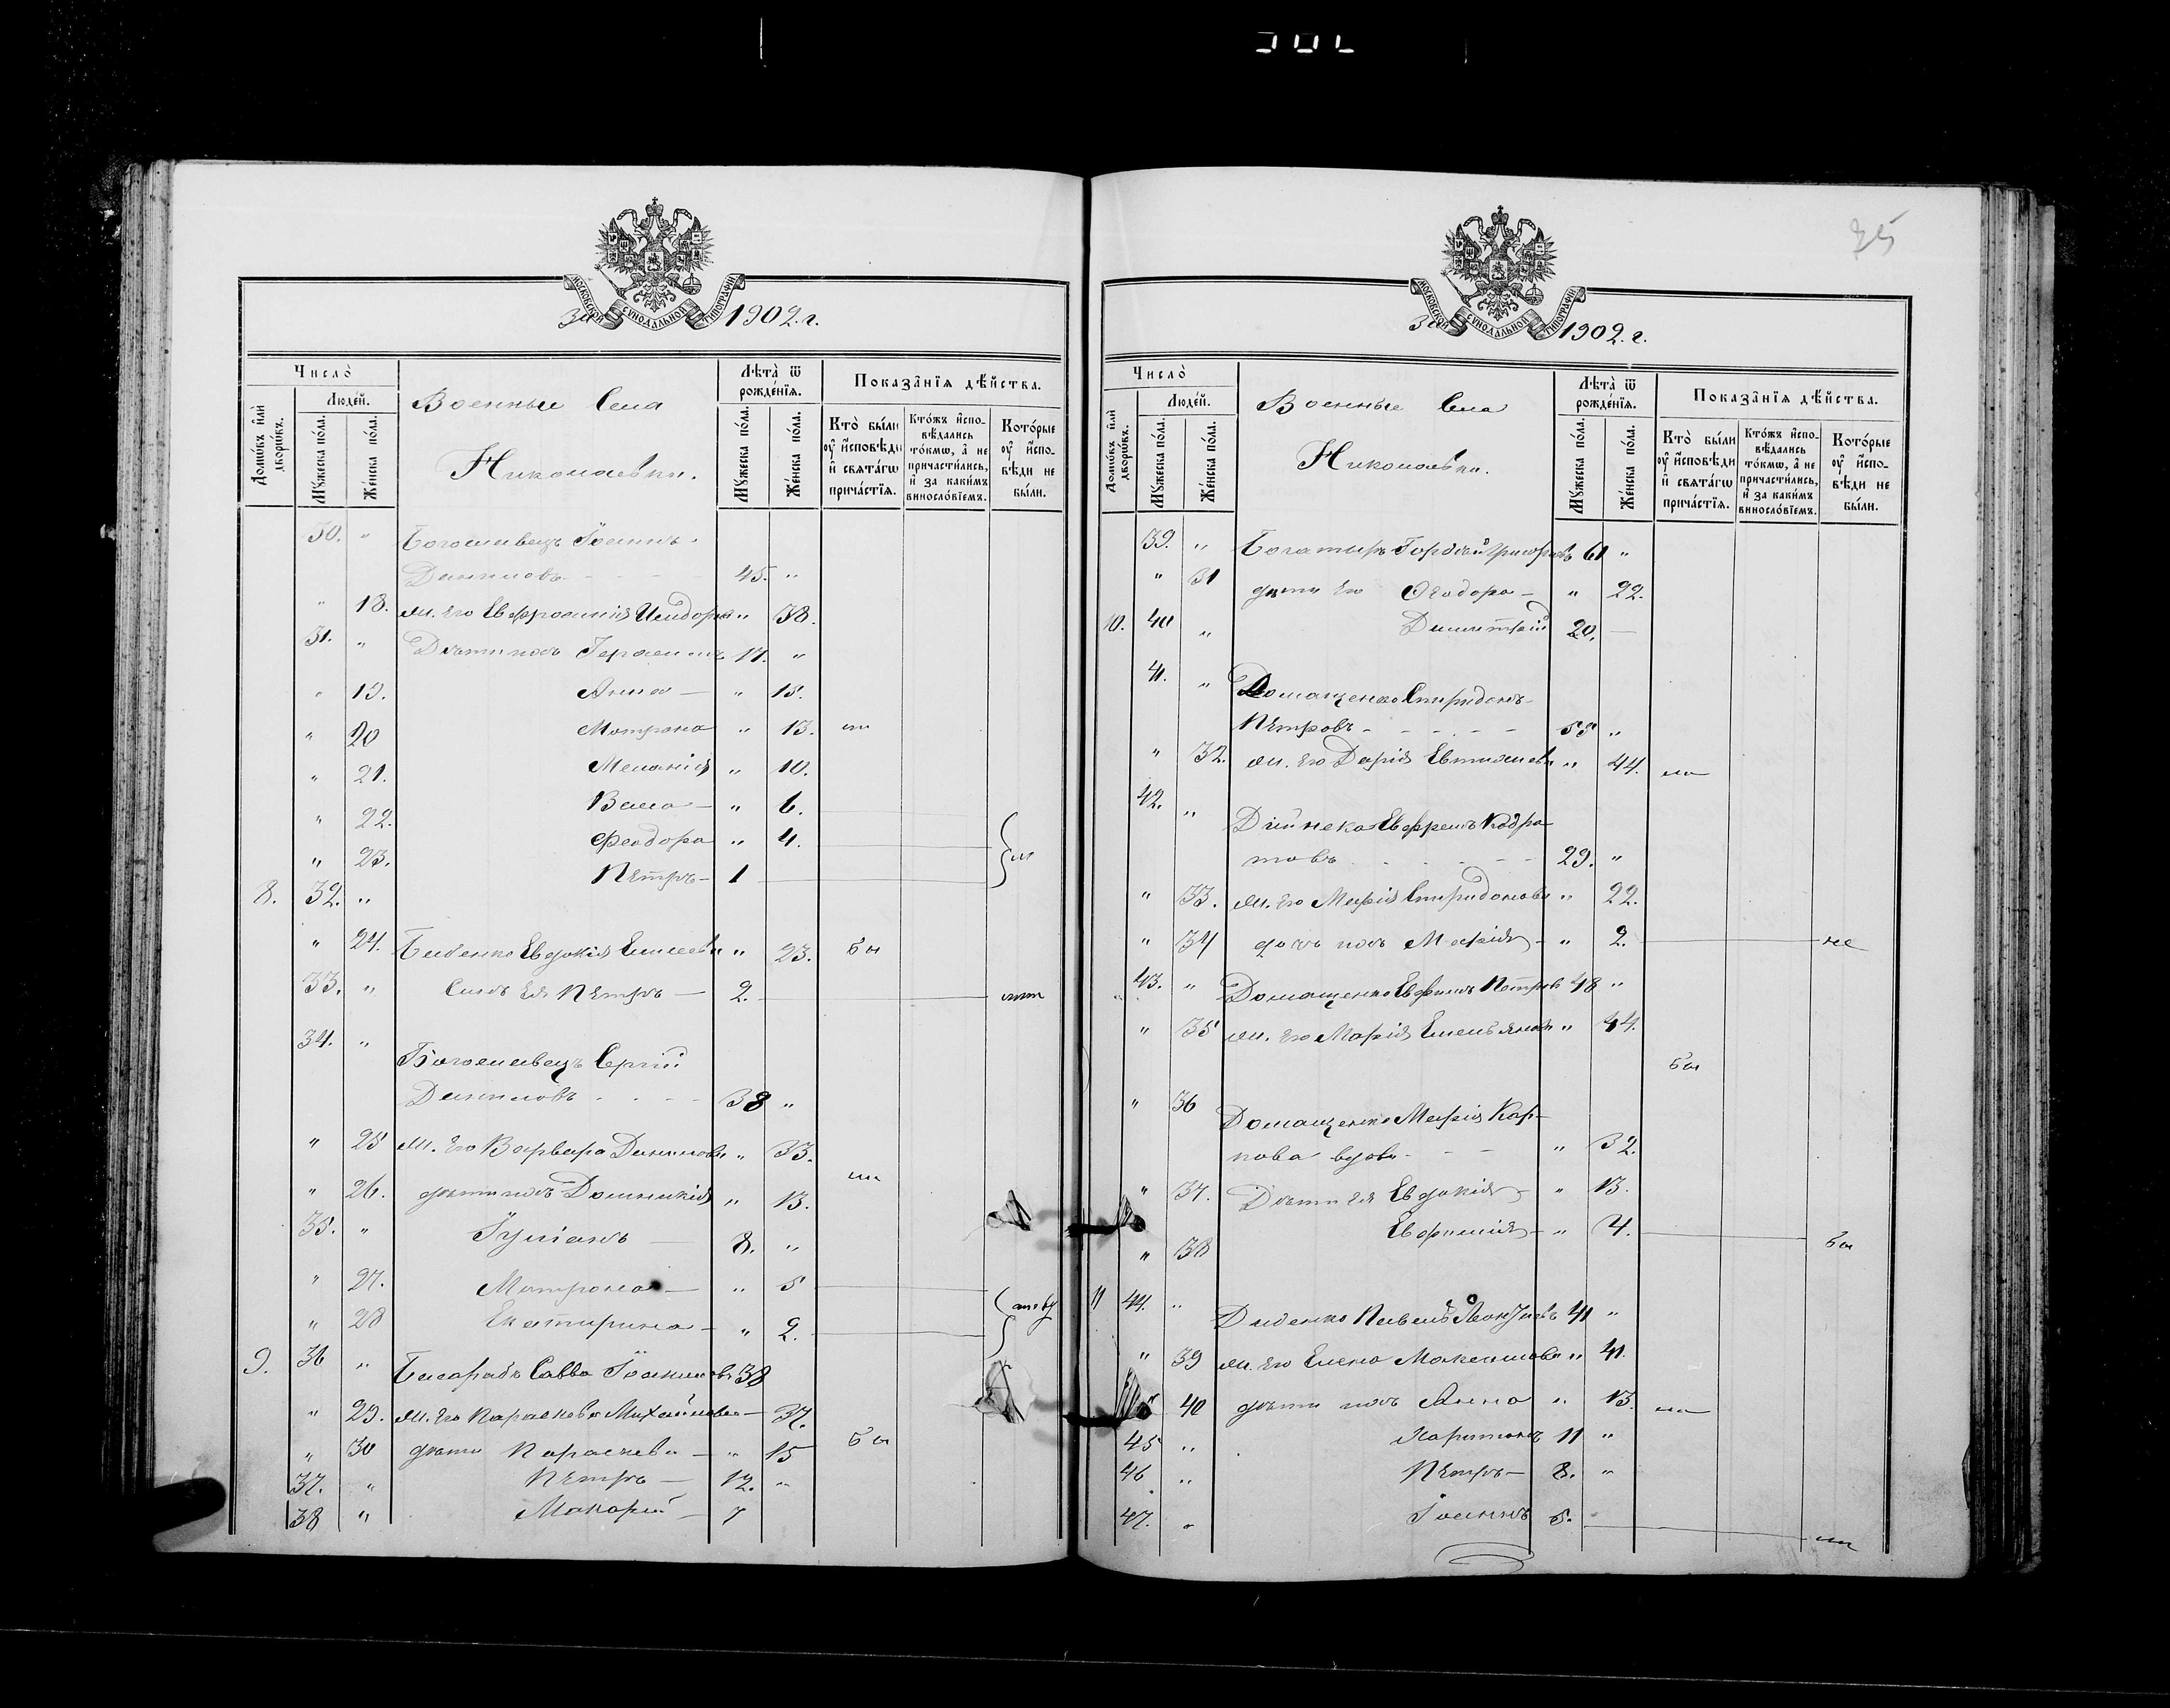 35
МОСКОВСКОЙ СУНОДАЛЬНОЙ ТИПОГРАФІИ
За 1902. г.
Число̀
Лѣта̀ ѿ рожде́нїѧ.
Показа̑нїѧ дѣ́йства.
Домѡ́въ и҆лѝ дворѡ́въ.
Люде́й.
Мꙋ́жеска по́ла.
Же́нска по́ла.
Военные Села
Николаевки.
Мꙋ́жеска по́ла.
Же́нска по́ла.
Кто̀ бы́ли ᲂу҆ и҆́сповѣди и҆ свѧта́гѡ прича́стїѧ.
Кто́жъ и҆спо-вѣ́дались то́кмѡ, а҆ не причасти́лись, и҆ за каки́мъ винослⷪ҇вїемъ.
Кото́рые ᲂу҆ и҆́спо-вѣди не бы́ли.
30. " Богомивецъ Іоаннъ
Даниловъ - - - 45. "
" 18. ж. его Евфросинія Исидоро " 38.
31. " Дѣти ихъ Герасимъ 17. "
" 19. Анна — " 15.
" 20 Матрона " 13.
" 21. Меланія " 10.
" 22. Васса — " 6.
" 23. Феодора " 4.
8. 32. " Петръ — 1
" 24. Евдокія " 23. бы
33. " Сынъ ея Петръ — 2.
34. " Богомивецъ Сергій
Даниловъ - - - 38 "
" 25 ж. его Варвара Данилова " 33.
" 26. дѣти ихъ Домникія " 13.
35. " Іуліанъ — 8. "
" 27. Матрона — " 5
" 28 Екатерина — " 2.
9. 36 " Савва Іоакимовъ 38
" 29. ж. его Параскева Михайлова — 37.
" 30 дѣти Параскева — " 15 бы
37. " Петръ — 12. "
38 " Макарій — 7
МОСКОВСКОЙ СУНОДАЛЬНОЙ ТИПОГРАФІИ
За 1902. г.
Число̀
Лѣта̀ ѿ рожде́нїѧ.
Показа̑нїѧ дѣ́йства.
Домѡ́въ и҆лѝ дворѡ́въ.
Люде́й.
Мꙋ́жеска по́ла.
Же́нска по́ла.
Военные Села
Николаевки.
Мꙋ́жеска по́ла.
Же́нска по́ла.
Кто̀ бы́ли ᲂу҆ и҆́сповѣди и҆ свѧта́гѡ прича́стїѧ.
Кто́жъ и҆спо-вѣ́дались то́кмѡ, а҆ не причасти́лись, и҆ за каки́мъ винослⷪ҇вїемъ.
Кото́рые ᲂу҆ и҆́спо-вѣди не бы́ли.
39. " Богатырь Гордій Григорьевъ 61 "
" 31 дѣти его Ѳеодора — " 22.
10. 40 " Димитрій 20. —
41. " Домащенко Спиридонъ
Петровъ - - - - 55 "
" 32. ж. его Дарія Евтихиева " 44.
42. " Дійнека Ефремъ Кодра
товъ - - - - 29. "
" 33. ж. его Марія Спиридонова " 22.
" 34 дочь ихъ Марія — " 2. не
43. " Домащенко Ефимъ Петровъ 48 "
" 35 ж. его Марія Емельянова " 44.
бы
" 36 Домащенко Марія Кар-
пова вдова - - - " 32.
" 37. Дѣти ея Евдокія — " 13.
" 38 Евфимія — " 4. бы
11 44. " Диденко Павелъ 41 "
" 39 ж. его Елена Максимова " 41.
" 40 дѣти ихъ Анна " 13.
45 " Харитонъ 11 "
46 " Петръ — 8. "
47. " Іоаннъ 5. "